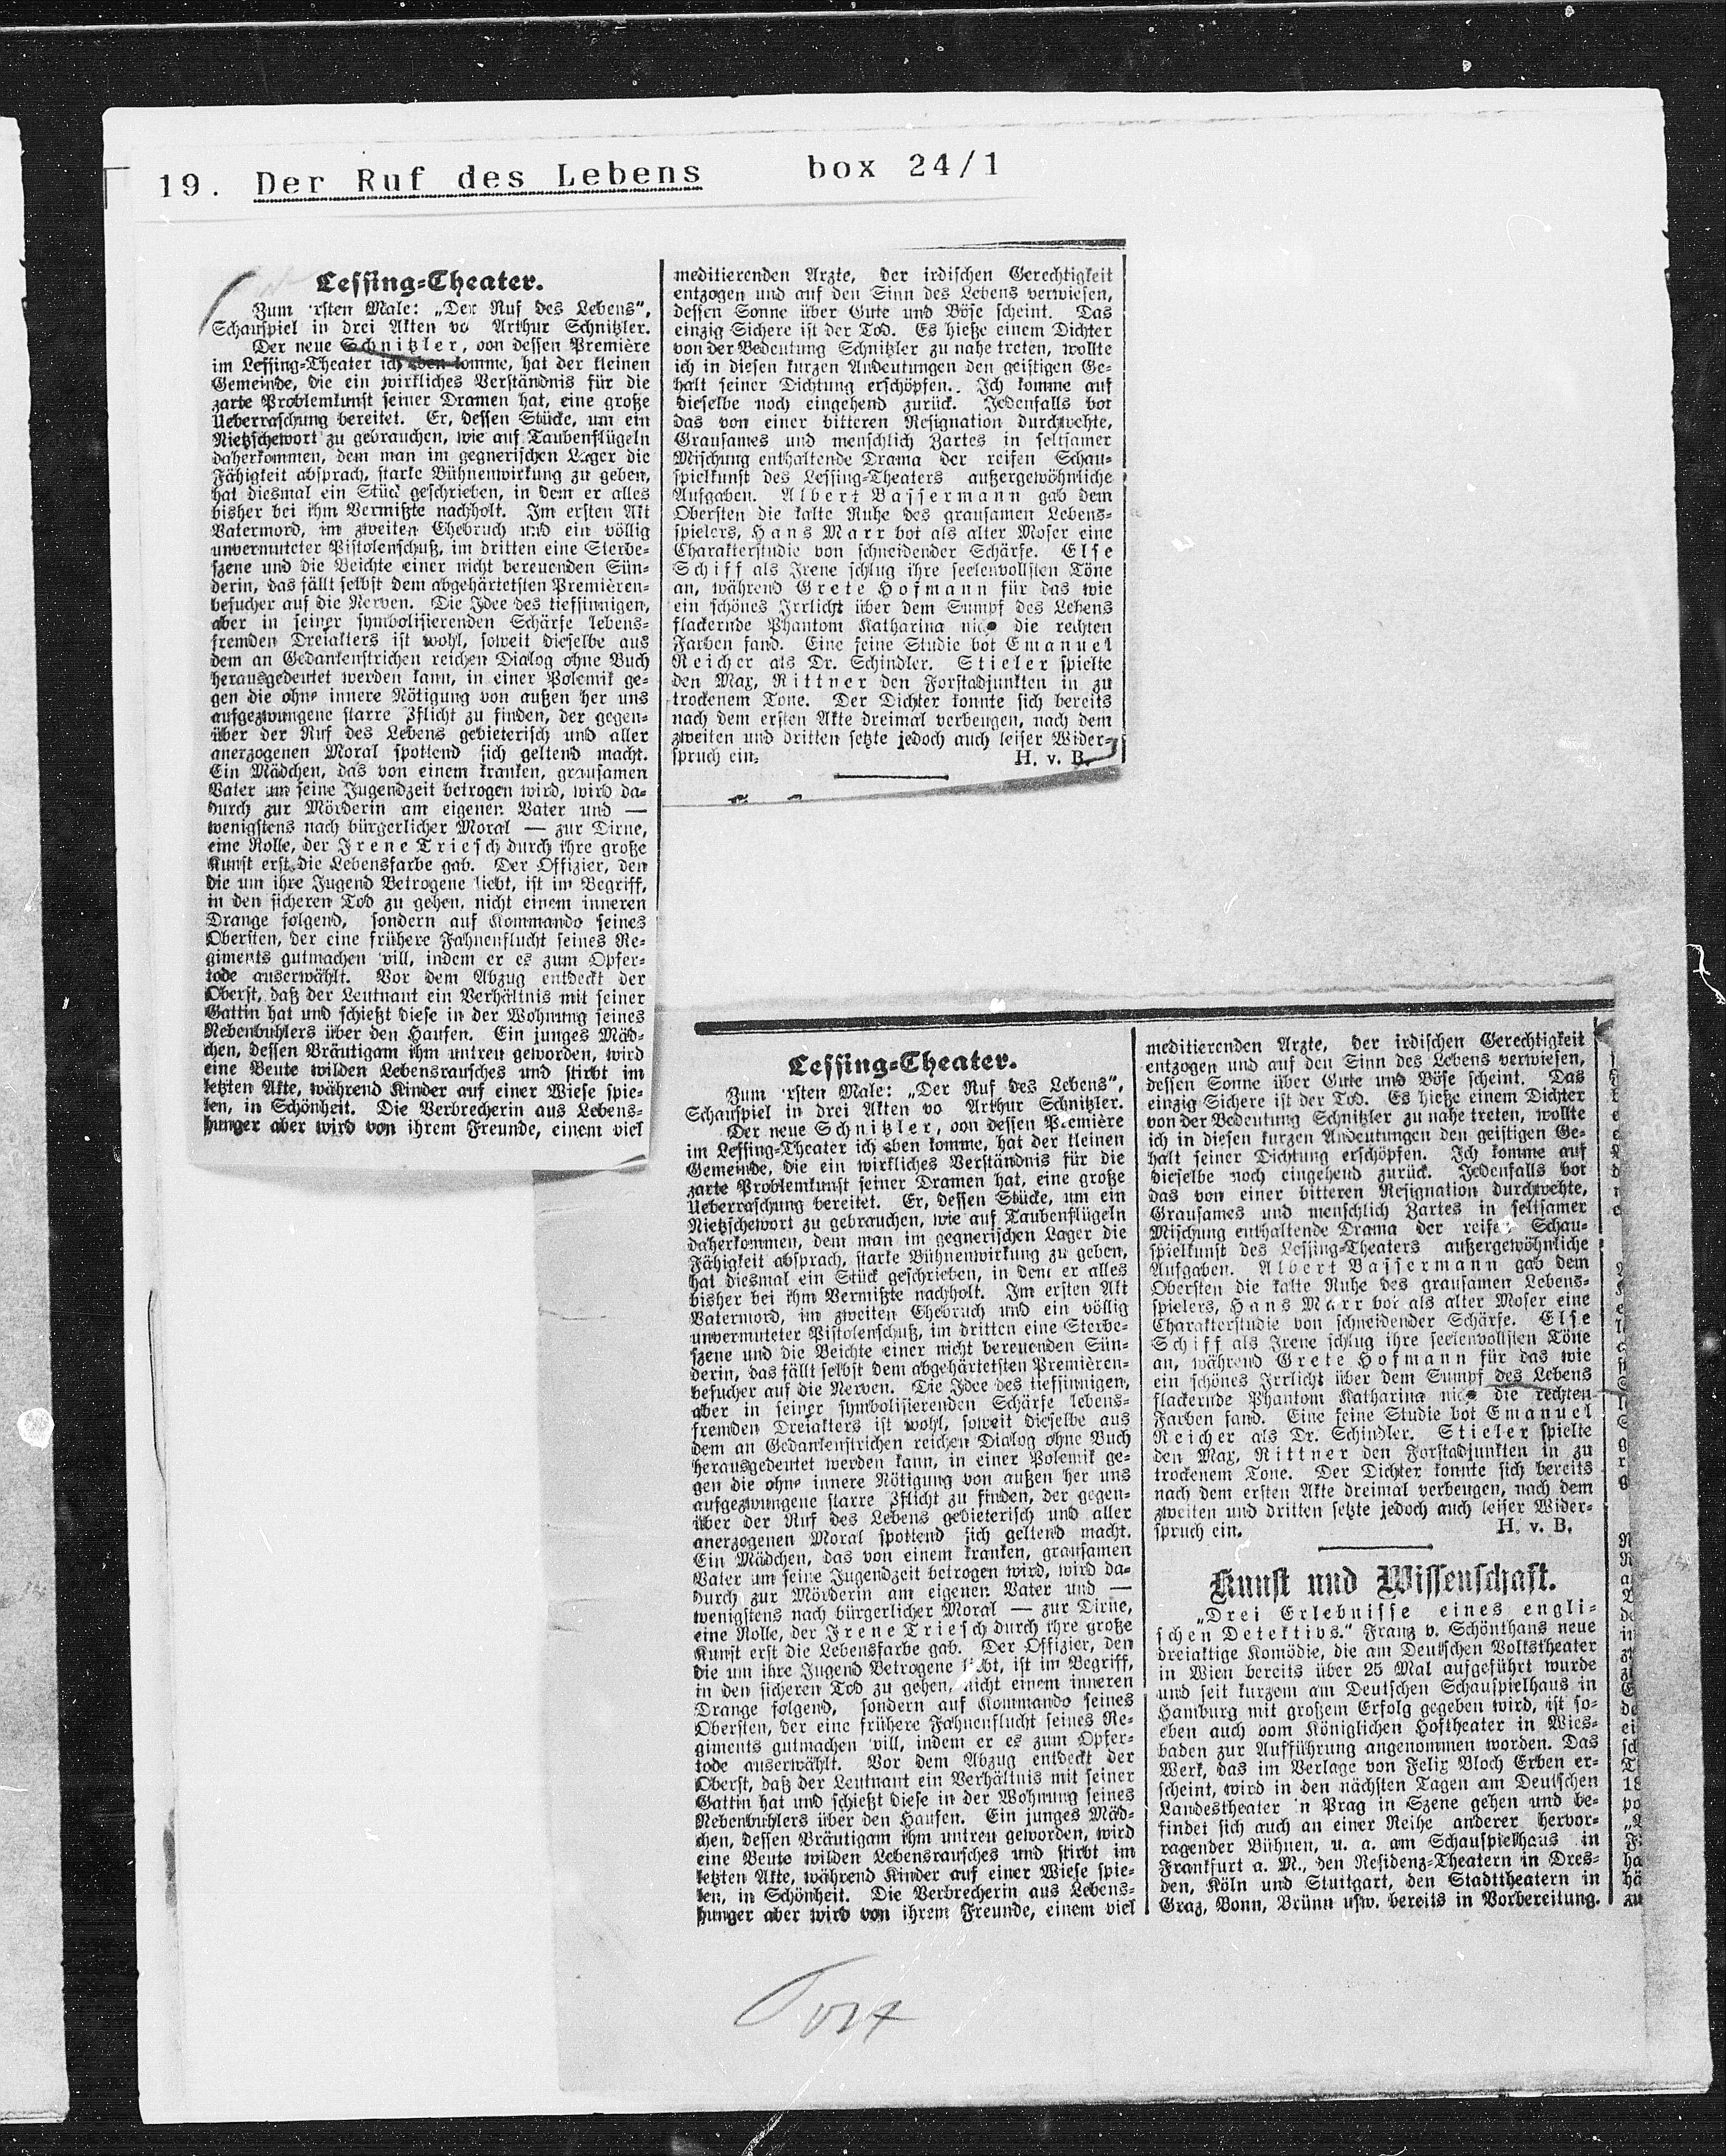 19. Der Ruf des Lebens box 24/1
Lessing-Theater.
Zum rsten Male: „Der Ruf des Lebens“,
Schauspiel in drei Akten vo Arthur Schnitzler.
Der neue Schnitzler, von dessen Première
im Lessing-Theater ich eben komme, hat der kleinen
Gemeinde, die ein wirkliches Verständnis für die
zarte Problemkunst seiner Dramen hat, eine große
Ueberraschung bereitet. Er, dessen Stücke, um ein
Nietzschewort zu gebrauchen, wie auf Taubenflügeln
daherkommen, dem man im gegnerischen Lager die
Fähigkeit absprach, starke Bühnenwirkung zu geben,
hat diesmal ein Stück geschrieben, in dem er alles
bisher bei ihm Vermißte nachholt. Im ersten Akt
Vatermord, im zweiten Ehebruch und ein völlig
unvermuteter Pistolenschuß, im dritten eine Sterbe-
szene und die Beichte einer nicht bereuenden Sün-
derin, das fällt selbst dem abgehärtetsten Premièren-
besucher auf die Nerven. Die Idee des tiefsinnigen,
aber in seiner symbolisierenden Schärfe lebens-
fremden Dreiakters ist wohl, soweit dieselbe aus
dem an Gedankenstrichen reichen Dialog ohne Buch
herausgedeutet werden kann, in einer Polemik ge-
gen die ohne innere Nötigung von außen her uns
aufgezwungene starre Pflicht zu finden, der gegen-
über der Ruf des Lebens gebieterisch und aller
anerzogenen Moral spottend sich geltend macht.
Ein Mädchen, das von einem kranken, grausamen
Vater um seine Jugendzeit betrogen wird, wird da-
durch zur Mörderin am eigenen Vater und —
wenigstens nach bürgerlicher Moral — zur Dirne,
eine Rolle, der Irene Triesch durch ihre große
Kunst erst die Lebensfarbe gab. Der Offizier, den
die um ihre Jugend Betrogene liebt, ist im Begriff,
in den sicheren Tod zu gehen, nicht einem inneren
Drange folgend, sondern auf Kommando seines
Obersten, der eine frühere Fahnenflucht seines Re-
giments gutmachen will, indem er es zum Opfer-
tode auserwählt. Vor dem Abzug entdeckt der
Oberst, daß der Leutnant ein Verhältnis mit seiner
Gattin hat und schießt diese in der Wohnung seines
Nebenbuhlers über den Haufen. Ein junges Mäd-
chen, dessen Bräutigam ihm untreu geworden, wird
eine Beute wilden Lebensrausches und stirbt im
letzten Akte, während Kinder auf einer Wiese spie-
len, in Schönheit. Die Verbrecherin aus Lebens-
hunger aber wird von ihrem Freunde, einem viel
meditierenden Arzte, der irdischen Gerechtigkeit
entzogen und auf den Sinn des Lebens verwiesen,
dessen Sonne über Gute und Böse scheint. Das
einzig Sichere ist der Tod. Es hieße einem Dichter
von der Bedeutung Schnitzler zu nahe treten, wollte
ich in diesen kurzen Andeutungen den geistigen Ge-
halt seiner Dichtung erschöpfen. Ich komme auf
dieselbe noch eingehend zurück. Jedenfalls bot
das von einer bitteren Resignation durchwehte,
Grausames und menschlich Zartes in seltsamer
Mischung enthaltende Drama der reifen Schau-
spielkunst des Lessing-Theaters außergewöhnliche
Aufgaben. Albert Bassermann gab dem
Obersten die kalte Ruhe des grausamen Lebens-
spielers, Hans Marr bot als alter Moser eine
Charakterstudie von schneidender Schärfe. Else
Schiff als Irene schlug ihre seelenvollsten Töne
an, während Grete Hofmann für das wie
ein schönes Irrlicht über dem Sumpf des Lebens
flackernde Phantom Katharina die rechten
Farben fand. Eine feine Studie bot Emanuel
Reicher als Dr. Schindler. Stieler spielte
den Max, Rittner den Forstadjunkten in zu
trockenem Tone. Der Dichter konnte sich bereits
nach dem ersten Akte dreimal verbeugen, nach dem
zweiten und dritten setzte jedoch auch leiser Wider-
spruch ein. H. v. B.
Lessing-Theater.
Zum rsten Male: „Der Ruf des Lebens“,
Schauspiel in drei Akten vo Arthur Schnitzler.
Der neue Schnitzler, von dessen Première
im Lessing-Theater ich eben komme, hat der kleinen
Gemeinde, die ein wirkliches Verständnis für die
zarte Problemkunst seiner Dramen hat, eine große
Ueberraschung bereitet. Er, dessen Stücke, um ein
Nietzschewort zu gebrauchen, wie auf Taubenflügeln
daherkommen, dem man im gegnerischen Lager die
Fähigkeit absprach, starke Bühnenwirkung zu geben,
hat diesmal ein Stück geschrieben, in dem er alles
bisher bei ihm Vermißte nachholt. Im ersten Akt
Vatermord, im zweiten Ehebruch und ein völlig
unvermuteter Pistolenschuß, im dritten eine Sterbe-
szene und die Beichte einer nicht bereuenden Sün-
derin, das fällt selbst dem abgehärtetsten Premièren-
besucher auf die Nerven. Die Idee des tiefsinnigen,
aber in seiner symbolisierenden Schärfe lebens-
fremden Dreiakters ist wohl, soweit dieselbe aus
dem an Gedankenstrichen reichen Dialog ohne Buch
herausgedeutet werden kann, in einer Polemik ge-
gen die ohne innere Nötigung von außen her uns
aufgezwungene starre Pflicht zu finden, der gegen-
über der Ruf des Lebens gebieterisch und aller
anerzogenen Moral spottend sich geltend macht.
Ein Mädchen, das von einem kranken, grausamen
Vater um seine Jugendzeit betrogen wird, wird da-
durch zur Mörderin am eigenen Vater und —
wenigstens nach bürgerlicher Moral — zur Dirne,
eine Rolle, der Irene Triesch durch ihre große
Kunst erst die Lebensfarbe gab. Der Offizier, den
die um ihre Jugend Betrogene liebt, ist im Begriff,
in den sicheren Tod zu gehen, nicht einem inneren
Drange folgend, sondern auf Kommando seines
Obersten, der eine frühere Fahnenflucht seines Re-
giments gutmachen will, indem er es zum Opfer-
tode auserwählt. Vor dem Abzug entdeckt der
Oberst, daß der Leutnant ein Verhältnis mit seiner
Gattin hat und schießt diese in der Wohnung seines
Nebenbuhlers über den Haufen. Ein junges Mäd-
chen, dessen Bräutigam ihm untreu geworden, wird
eine Beute wilden Lebensrausches und stirbt im
letzten Akte, während Kinder auf einer Wiese spie-
len, in Schönheit. Die Verbrecherin aus Lebens-
hunger aber wird von ihrem Freunde, einem viel
meditierenden Arzte, der irdischen Gerechtigkeit
entzogen und auf den Sinn des Lebens verwiesen,
dessen Sonne über Gute und Böse scheint. Das
einzig Sichere ist der Tod. Es hieße einem Dichter
von der Bedeutung Schnitzler zu nahe treten, wollte
ich in diesen kurzen Andeutungen den geistigen Ge-
halt seiner Dichtung erschöpfen. Ich komme auf
dieselbe noch eingehend zurück. Jedenfalls bot
das von einer bitteren Resignation durchwehte,
Grausames und menschlich Zartes in seltsamer
Mischung enthaltende Drama der reifen Schau-
spielkunst des Lessing-Theaters außergewöhnliche
Aufgaben. Albert Bassermann gab dem
Obersten die kalte Ruhe des grausamen Lebens-
spielers, Hans Marr bot als alter Moser eine
Charakterstudie von schneidender Schärfe. Else
Schiff als Irene schlug ihre seelenvollsten Töne
an, während Grete Hofmann für das wie
ein schönes Irrlicht über dem Sumpf des Lebens
flackernde Phantom Katharina die rechten
Farben fand. Eine feine Studie bot Emanuel
Reicher als Dr. Schindler. Stieler spielte
den Max, Rittner den Forstadjunkten in zu
trockenem Tone. Der Dichter konnte sich bereits
nach dem ersten Akte dreimal verbeugen, nach dem
zweiten und dritten setzte jedoch auch leiser Wider-
spruch ein. H. v. B.
Kunst und Wissenschaft.
„Drei Erlebnisse eines engli-
schen Detektivs.“ Franz v. Schönthans neue
dreiaktige Komödie, die am Deutschen Volkstheater
in Wien bereits über 25 Mal aufgeführt wurde
und seit kurzem am Deutschen Schauspielhaus in
Hamburg mit großem Erfolg gegeben wird, ist so-
eben auch vom Königlichen Hoftheater in Wies-
baden zur Aufführung angenommen worden. Das
Werk, das im Verlage von Felix Bloch Erben er-
scheint, wird in den nächsten Tagen am Deutschen
Landestheater n Prag in Szene gehen und be-
findet sich auch an einer Reihe anderer hervor-
ragender Bühnen, u. a. am Schauspielhaus in
Frankfurt a. M., den Residenz-Theatern in Dres-
den, Köln und Stuttgart, den Stadttheatern in
Graz, Bonn, Brünn usw. bereits in Vorbereitung.